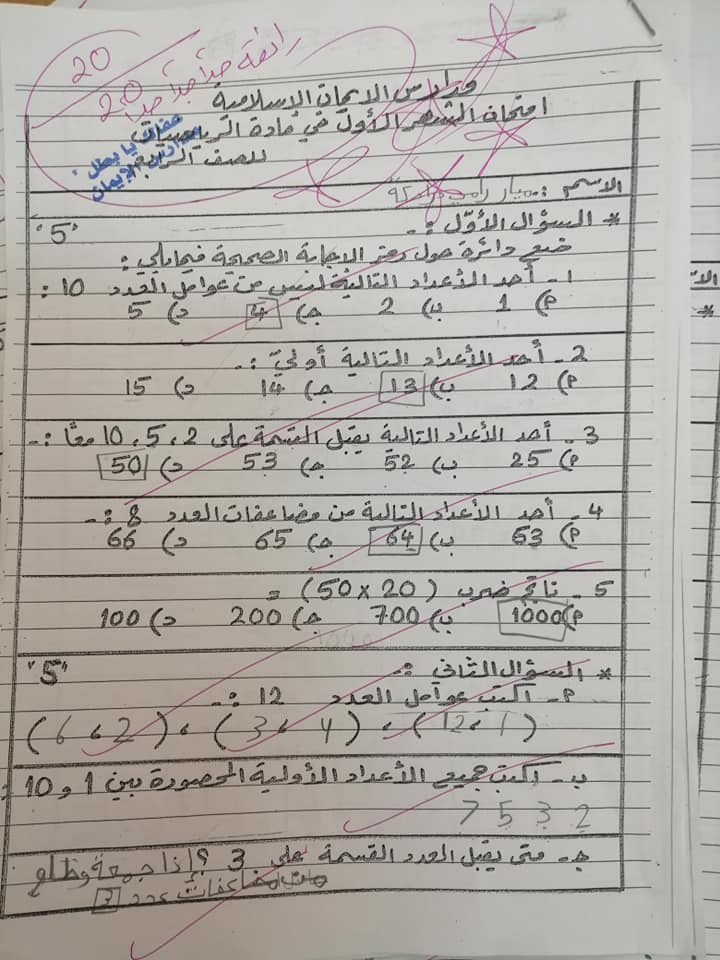 20
20
رائعة جداً جداً جداً
مدارس الإيمان الإسلامية
امتحان الشهر الأول في مادة الرياضيات
للصف الرابع
مدارس الإيمان
الاسم :-
* السؤال الأوّل :-
"5"
ضع دائرة حول رمز الإجابة الصحيحة فيما يلي :
1- أحد الأعداد التالية ليس من عوامل العدد 10 :
أ) 1 ب) 2 جـ) 4 د) 5
2- أحد الأعداد التالية أوليّ :-
أ) 12 ب) 13 جـ) 14 د) 15
3- أحد الأعداد التالية يقبل القسمة على 2، 5، 10 معًا :-
أ) 25 ب) 52 جـ) 53 د) 50
4- أحد الأعداد التالية من مضاعفات العدد 8 :-
أ) 63 ب) 64 جـ) 65 د) 66
5- ناتج ضرب (50 × 20) =
أ) 1000 ب) 700 جـ) 200 د) 100
* السؤال الثاني :-
"5"
أ- اكتب عوامل العدد 12 :-
(1، 12)، (4، 3)، (2، 6)
ب- اكتب جميع الأعداد الأولية المحصورة بين 1 و 10 :
2 3 5 7
جـ- متى يقبل العدد القسمة على 3 ؟ إذا جمعة وطلع
مضاعفات عدد 3